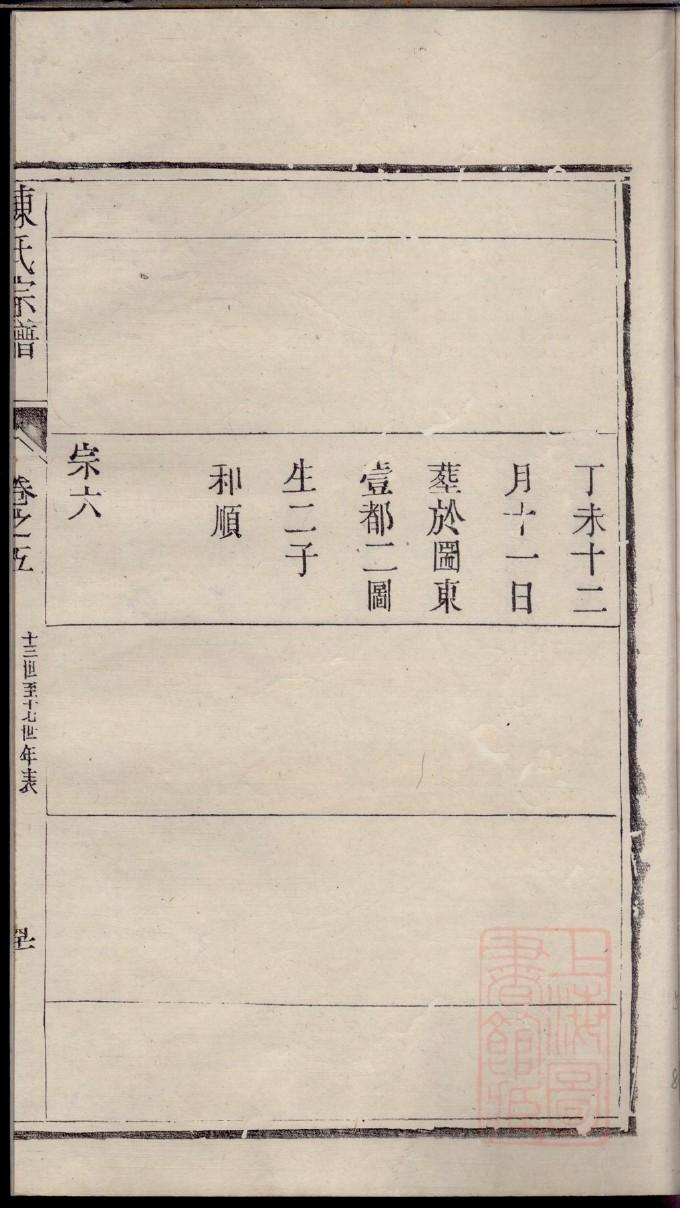 丁未十二
月十一日
塟於圖東
壹都二圖
生二子
和順
宗六
陳氏宗譜
卷之五
十三世至十七世年表
上海圖書館藏